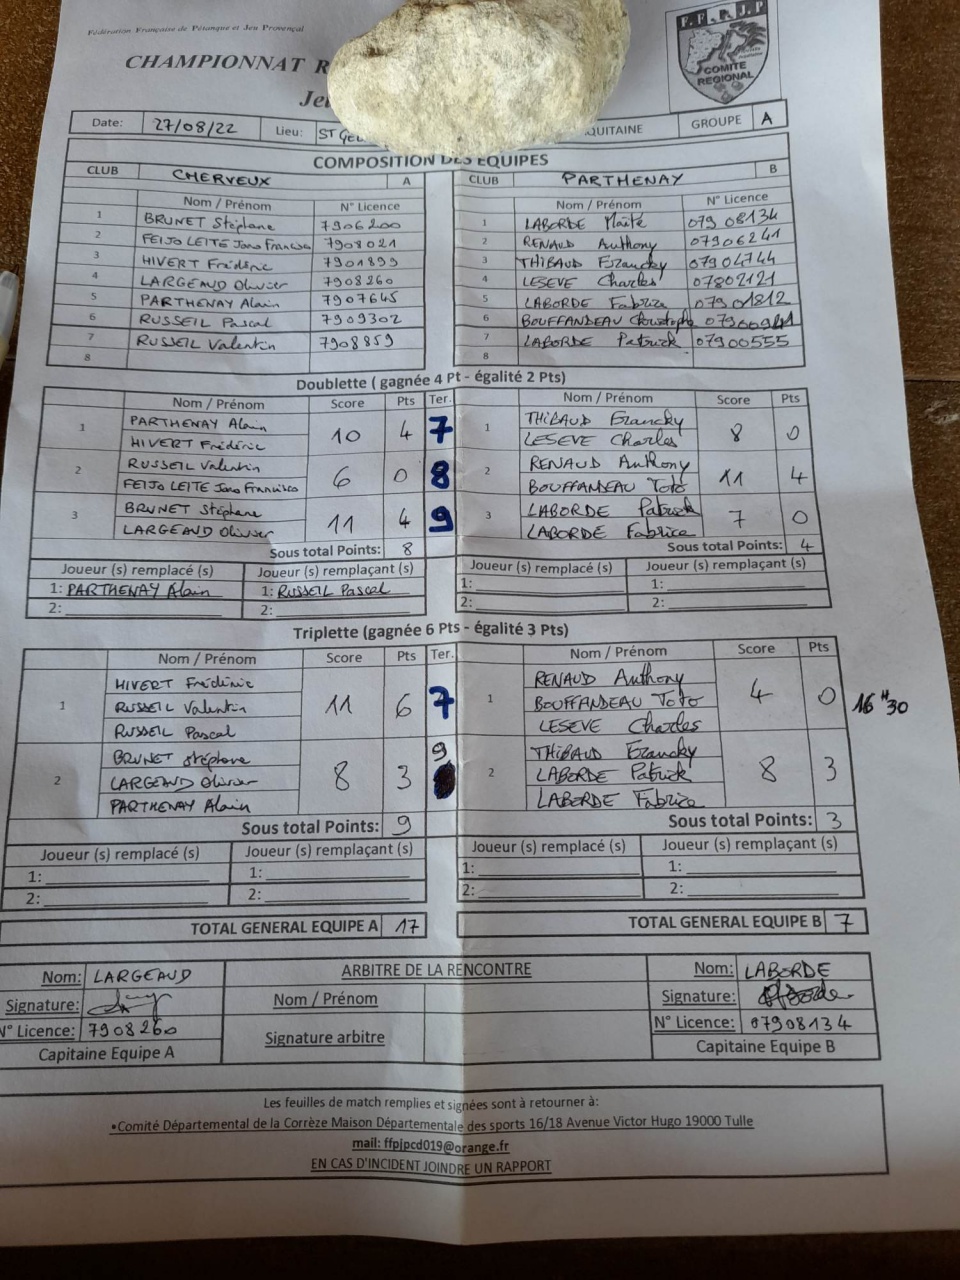 Fédération Française de Pétanque et Jeu Provençal
CHAMPIONNAT R
Je
F.F.P.J.P
COMITE
REGIONAL
Date: 27/08/22 Lieu: ST GE QUITAINE GROUPE A
COMPOSITION DES EQUIPES
CLUB CHERVEUX A CLUB PARTHENAY B
Nom / Prénom N° Licence Nom / Prénom N° Licence
1 BRUNET Stéphane 7906200 1 LABORDE Maïté 07908134
2 FEIJO LEITE Joao Francisco 7908021 2 RENAUD Anthony 07906241
3 HIVERT Frédéric 7901899 3 THIBAUD Francky 07904744
4 LARGEAUD Olivier 7908260 4 LESEVE Charles 07802121
5 PARTHENAY Alain 7907645 5 LABORDE Fabrice 07901812
6 RUSSEIL Pascal 7909302 6 BOUFFANDEAU Christophe 07900941
7 RUSSEIL Valentin 7908859 7 LABORDE Patrick 07900555
8 8
Doublette ( gagnée 4 Pt - égalité 2 Pts)
Nom / Prénom Score Pts Ter. Nom / Prénom Score Pts
1 PARTHENAY Alain 10 4 7 1 THIBAUD Francky 8 0
HIVERT Frédéric LESEVE Charles
2 RUSSEIL Valentin 6 0 8 2 RENAUD Anthony 11 4
FEIJO LEITE Joao Francisco BOUFFANDEAU Toto
3 BRUNET Stéphane 11 4 9 3 LABORDE Patrick 7 0
LARGEAUD Olivier LABORDE Fabrice
Sous total Points: 8 Sous total Points: 4
Joueur (s) remplacé (s) Joueur (s) remplaçant (s) Joueur (s) remplacé (s) Joueur (s) remplaçant (s)
1: PARTHENAY Alain 1: RUSSEIL Pascal 1: 1:
2: 2: 2: 2:
Triplette (gagnée 6 Pts - égalité 3 Pts)
Nom / Prénom Score Pts Ter. Nom / Prénom Score Pts
HIVERT Frédéric RENAUD Anthony
1 RUSSEIL Valentin 11 6 7 1 BOUFFANDEAU Toto 4 0 16H30
RUSSEIL Pascal LESEVE Charles
BRUNET Stéphane 9 THIBAUD Francky
2 LARGEAUD Olivier 8 3 2 LABORDE Patrick 8 3
PARTHENAY Alain LABORDE Fabrice
Sous total Points: 9 Sous total Points: 3
Joueur (s) remplacé (s) Joueur (s) remplaçant (s) Joueur (s) remplacé (s) Joueur (s) remplaçant (s)
1: 1: 1: 1:
2: 2: 2: 2:
TOTAL GENERAL EQUIPE A 17 TOTAL GENERAL EQUIPE B 7
Nom: LARGEAUD ARBITRE DE LA RENCONTRE Nom: LABORDE
Signature: Nom / Prénom Signature:
N° Licence: 7908260 Signature arbitre N° Licence: 07908134
Capitaine Equipe A Capitaine Equipe B
Les feuilles de match remplies et signées sont à retourner à:
•Comité Départemental de la Corrèze Maison Départementale des sports 16/18 Avenue Victor Hugo 19000 Tulle
mail: ffpjpcd019@orange.fr
EN CAS D'INCIDENT JOINDRE UN RAPPORT